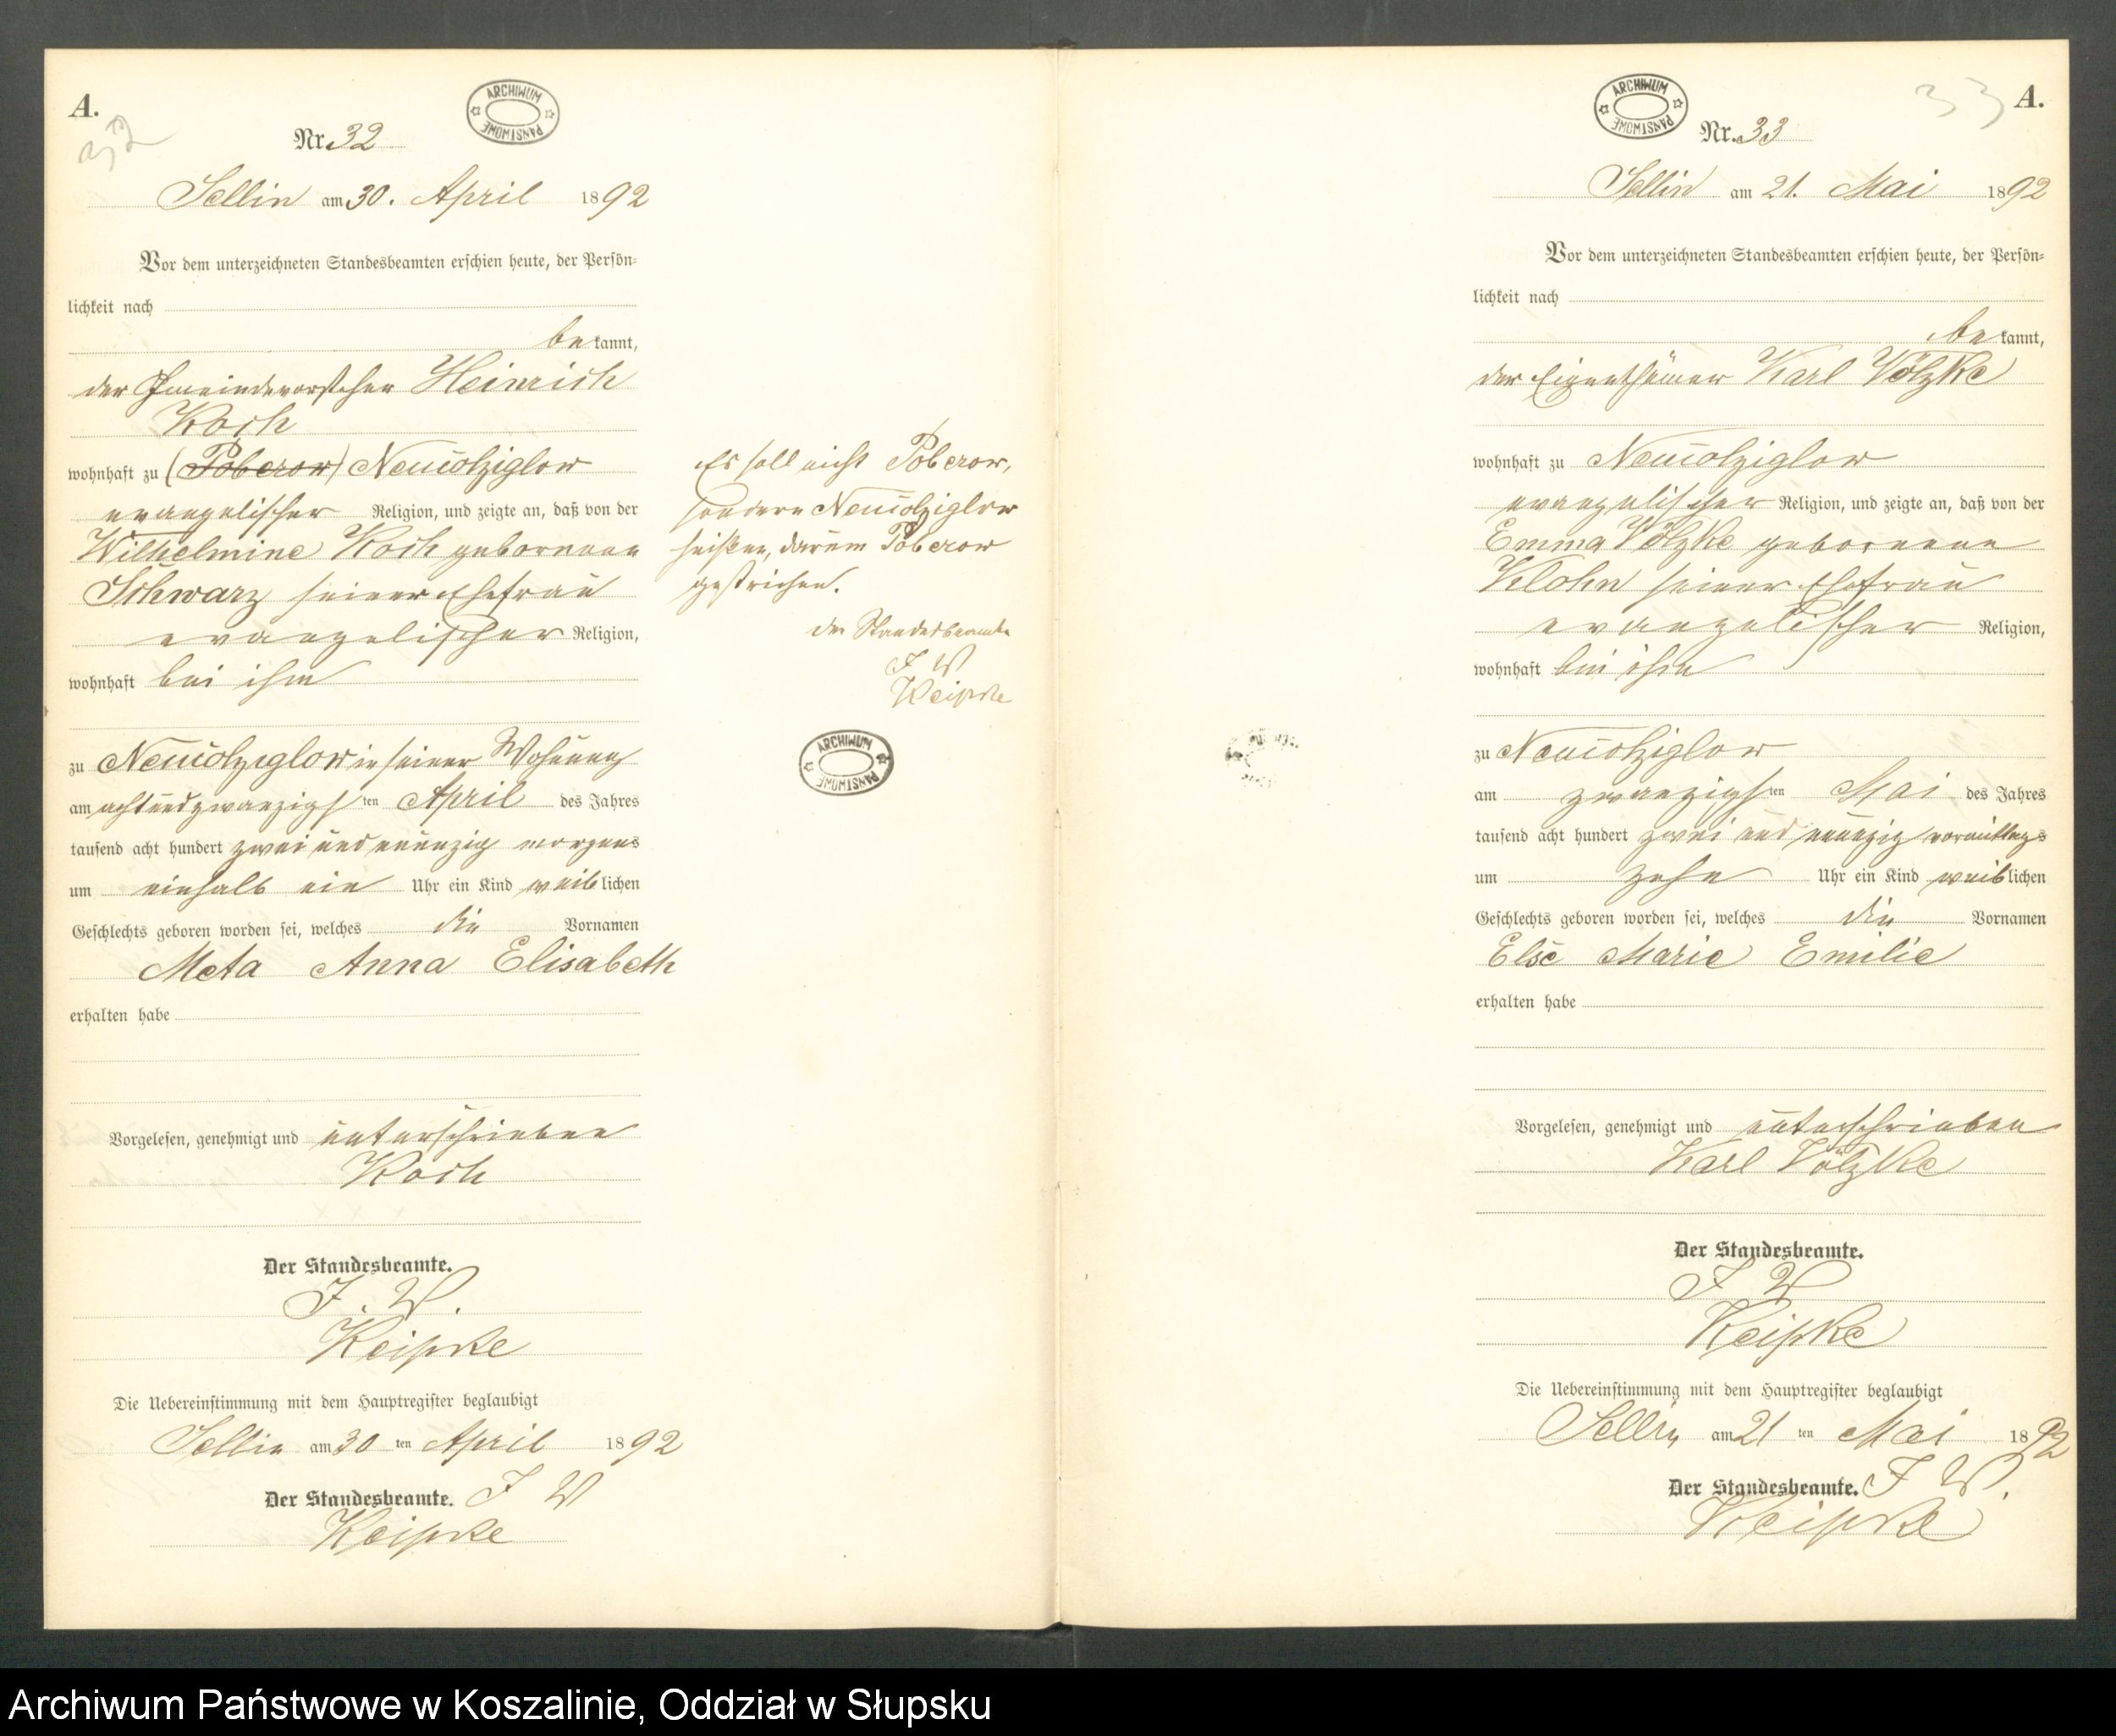 A.
32
ARCHIWUM PAŃSTWOWE
Nr. 32
Sellin am 30. April 1892
Vor dem unterzeichneten Standesbeamten erschien heute, der Persön-
lichkeit nach
bekannt,
der Gmeindevorsteher Heinrich
Koch
wohnhaft zu (Poberow) Neuúolziglow
evangelischer Religion, und zeigte an, daß von der
Wilhelmine Koch geborenen
Schwarz seiner Ehefrau
evangelischer Religion,
wohnhaft bei ihm
zu Neuúolziglow in seiner Wohnung
am achtundzwanzigsten April des Jahres
tausend acht hundert zwei und neunzig morgens
um einhalb ein Uhr ein Kind weiblichen
Geschlechts geboren worden sei, welches die Vornamen
Meta Anna Elisabeth
erhalten habe
Vorgelesen, genehmigt und unterschrieben
Koch
Der Standesbeamte.
J. W.
Keipke
Die Uebereinstimmung mit dem Hauptregister beglaubigt
Sellin am 30 ten April 1892
Der Standesbeamte. J W
Keipke
Es soll nicht Poberow,
sondern Neuúolziglow
heißen, darum Poberow
gestrichen.
der Standesbeamte
J W
Keipke
ARCHIWUM PAŃSTWOWE
ARCHIWUM PAŃSTWOWE
33
A.
Nr. 33
Sellin am 21. Mai 1892
Vor dem unterzeichneten Standesbeamten erschien heute, der Persön-
lichkeit nach
bekannt,
der Eigenthümer Karl Völzke
wohnhaft zu Neuúolziglow
evangelischer Religion, und zeigte an, daß von der
Emma Völzke geborenen
Klohn seiner Ehefrau
evangelischer Religion,
wohnhaft bei ihm
zu Neuúolziglow
am zwanzigsten Mai des Jahres
tausend acht hundert zwei und neunzig vormittags
um zehn Uhr ein Kind weiblichen
Geschlechts geboren worden sei, welches die Vornamen
Else Marie Emilie
erhalten habe
Vorgelesen, genehmigt und unterschrieben
Karl Völzke
Der Standesbeamte.
J W
Keipke
Die Uebereinstimmung mit dem Hauptregister beglaubigt
Sellin am 21 ten Mai 1892
Der Standesbeamte. J W.
Keipke
Archiwum Państwowe w Koszalinie, Oddział w Słupsku